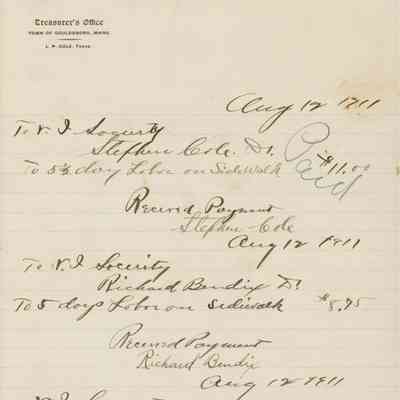 Treasurer's Office
TOWN OF GOULDSBORO, MAINE
L. P. COLE, Treas.
Aug 12 1911
To V. I. Socurity
Stephen Cole. Dr.
To 5½ day Labor on Sidewalk $11.00
Paid
Received Payment
Stephen Cole
Aug 12 1911
To V. I. Socurity
Richard Bendix Dr
To 5 days Labor on Sidewalk $8.75
Received Payment
Richard Bendix
Aug 12 1911